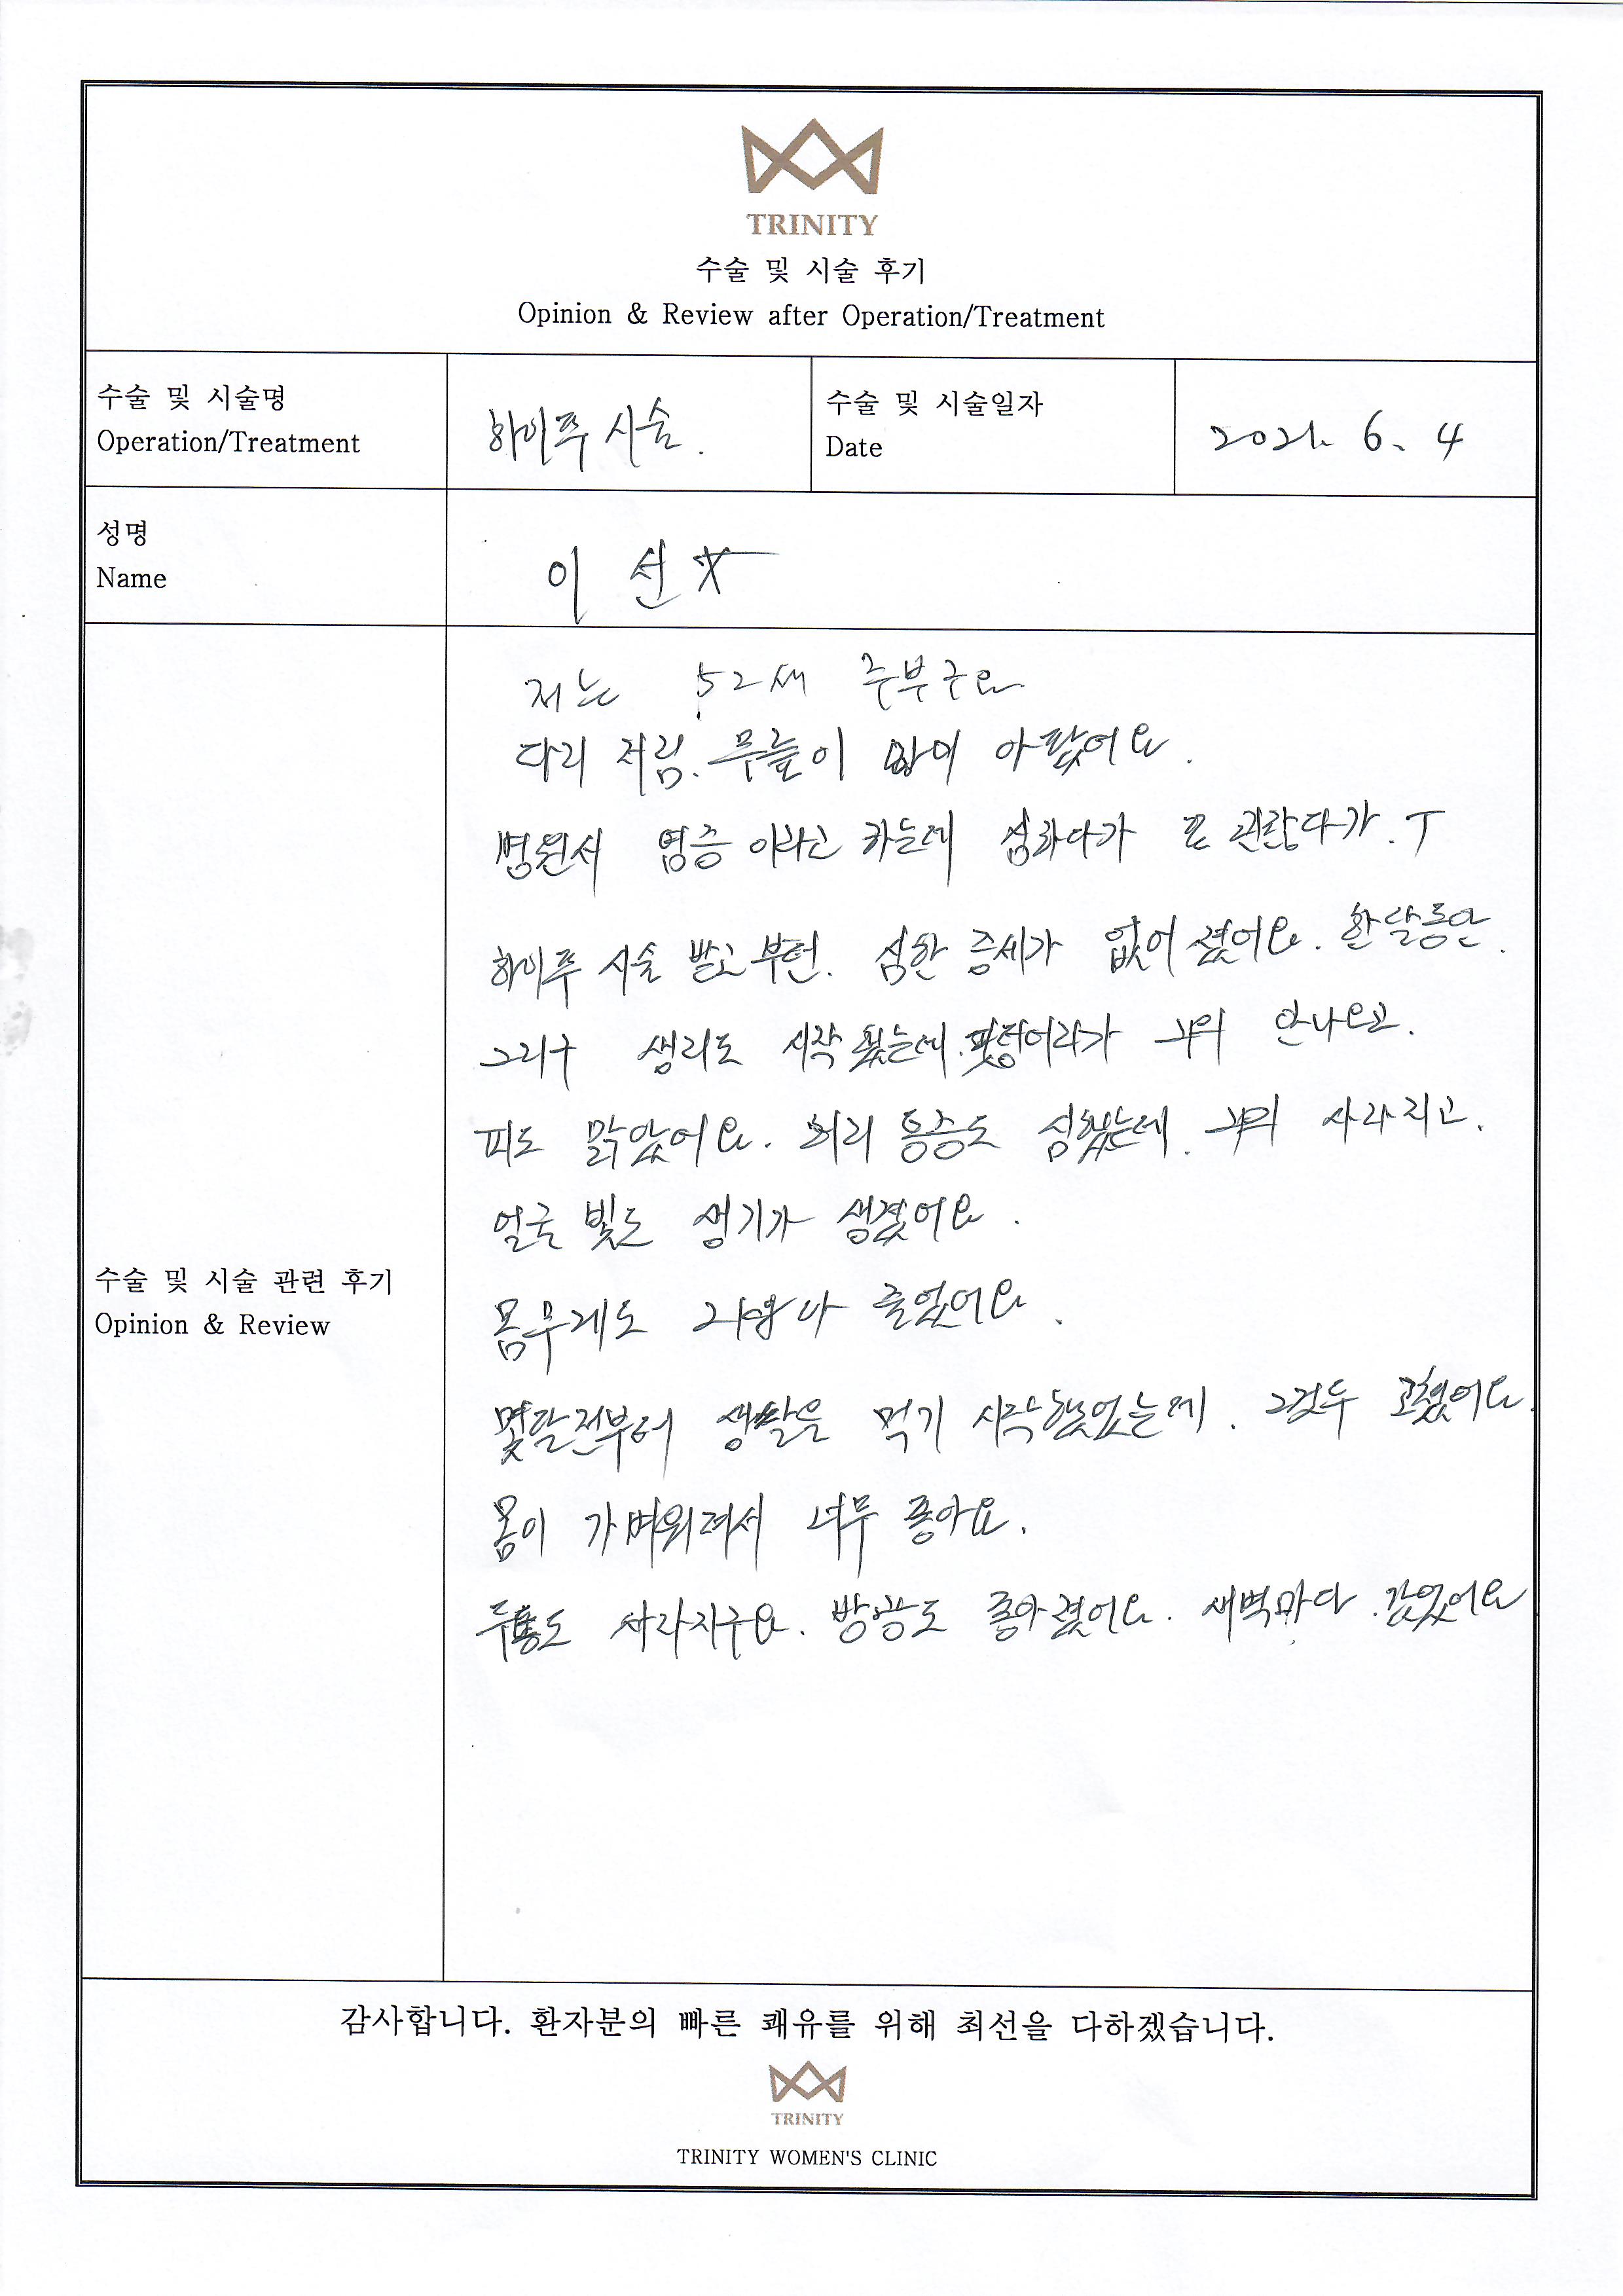 TRINITY
수술 및 시술 후기
Opinion & Review after Operation/Treatment
수술 및 시술명
Operation/Treatment
하이푸 시술.
수술 및 시술일자
Date
2021. 6. 4
성명
Name
이 선
수술 및 시술 관련 후기
Opinion & Review
저는 52세 주부구요
다리 저림. 무릎이 많이 아팠어요.
병원서 염증 이라고 하는데 심하다가 또 괜찮다가.
하이푸 시술 받고 부턴. 심한 증세가 없어 졌어요. 한달동안.
그리구 생리도 시작 됬는데. 거의 안나오고.
피도 맑았어요. 허리 통증도 심했는데. 거의 사라지고.
얼굴 빛도 생기가 생겼어요.
몸무게도 줄었어요.
몇달전부터 먹기 시작했었는데. 그것두 고쳤어요.
몸이 가벼워져서 너무 좋아요.
두통도 사라지구요. 방광도 좋아졌어요. 새벽마다 갔었어요
감사합니다. 환자분의 빠른 쾌유를 위해 최선을 다하겠습니다.
TRINITY
TRINITY WOMEN'S CLINIC